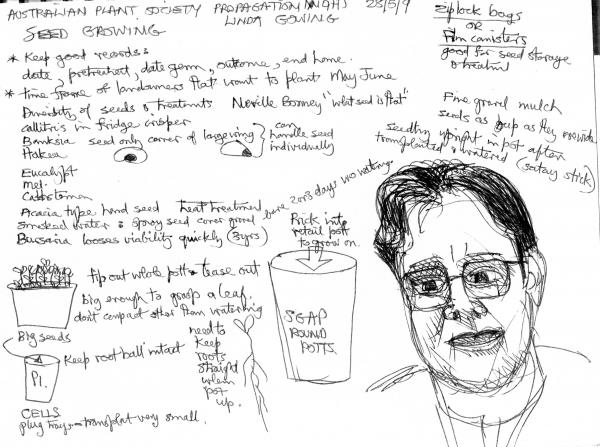 AUSTRALIAN PLANT SOCIETY PROPAGATION 28/5/9
LINDA GOWING
SEED GROWING
* Keep good records:
date, pretreatmt, date germ, outcome, end home.
* time frame of landowners that want to plant May June
Diversity of seeds & treatments Neville Bonney "what seed is that"
callitris in fridge crisper
Banksia seed only corner of large wing
Hakea
can
handle seed
individually
Eucalypt
Mel.
Callistemon
Acacia type hard seed heat treatment
smoked water & seed cover gravel
Bursaria looses viability quickly (3yrs)
here 2 or 3 days w/o watering.
ziplock bags
OR
Film canisters
good for seed storage
& treatmt
Fine gravel mulch
seeds as deep as they are wide
seedling upright in pot after
transplanted & watered (satay stick)
Prick into
retail pots
to grow on.
SGAP
ROUND
POTTS.
flip out whole pott & tease out
Big enough to grasp a leaf.
don't compact other than watering
Big seeds
P1.
Keep root ball intact
need to
keep
roots
straight
when
pot
up.
CELLS
plug trays → transplat very small.